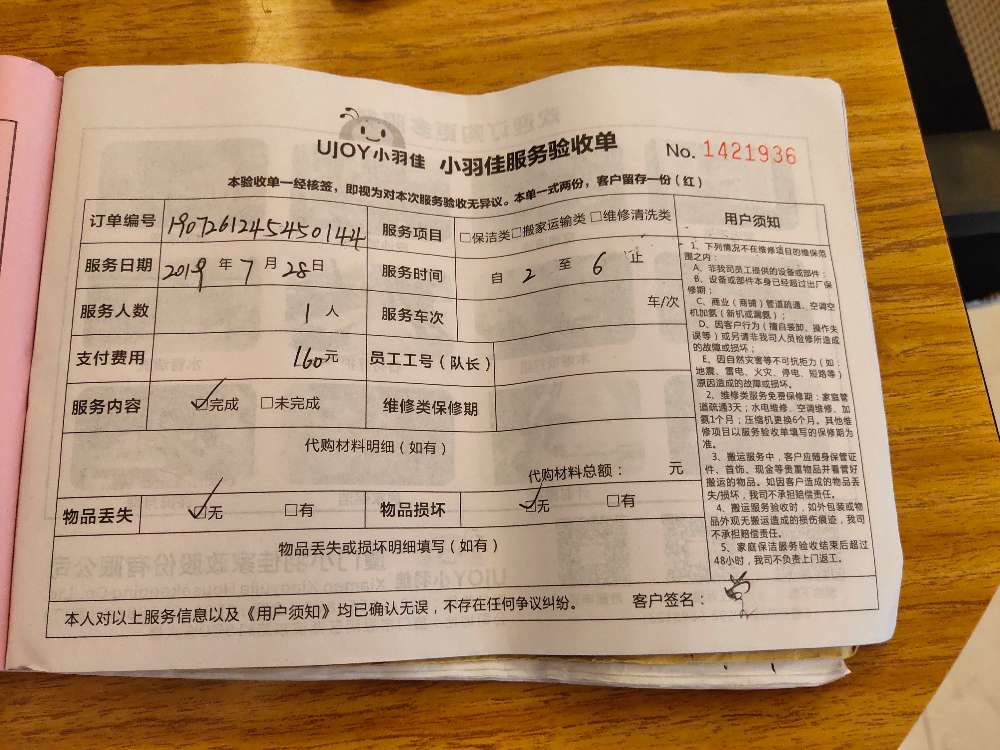 UJOY小羽佳 小羽佳服务验收单 No. 1421936
本验收单一经核签，即视为对本次服务验收无异议。本单一式两份，客户留存一份（红）
订单编号 1907261245450144 服务项目 □保洁类□搬家运输类 □维修清洗类
服务日期 2019 年 7 月 28 日 服务时间 自 2 至 6 止
服务人数 1 人 服务车次 车/次
支付费用 160元 员工工号（队长）
服务内容 ☑完成 □未完成 维修类保修期
代购材料明细（如有）
代购材料总额： 元
物品丢失 ☑无 □有 物品损坏 ☑无 □有
物品丢失或损坏明细填写（如有）
本人对以上服务信息以及《用户须知》均已确认无误，不存在任何争议纠纷。 客户签名：
用户须知
1、下列情况不在维修项目的维保范
围之内：
A、非我司员工提供的设备或部件；
B、设备或部件本身已经超过出厂保
修期；
C、商业（商铺）管道疏通、空调空
机加氨（新机或漏氨）；
D、因客户行为（擅自装卸、操作失
误等）或另请非我司人员检修所造成
的故障或损坏；
E、因自然灾害等不可抗拒力（如：
地震、雷电、火灾、停电、短路等）
原因造成的故障或损坏。
2、维修类服务免费保修期：家庭管
道疏通3天；水电维修、空调维修、加
氨1个月；压缩机更换6个月。其他维
修项目以服务验收单填写的保修期为
准。
3、搬运服务中，客户应随身保管证
件、首饰、现金等贵重物品并看管好
搬运的物品。如因客户造成的物品丢
失/损坏，我司不承担赔偿责任。
4、搬运服务验收时，如外包装或物
品外观无搬运造成的损伤痕迹，我司
不承担赔偿责任。
5、家庭保洁服务验收结束后超过
48小时，我司不负责上门返工。